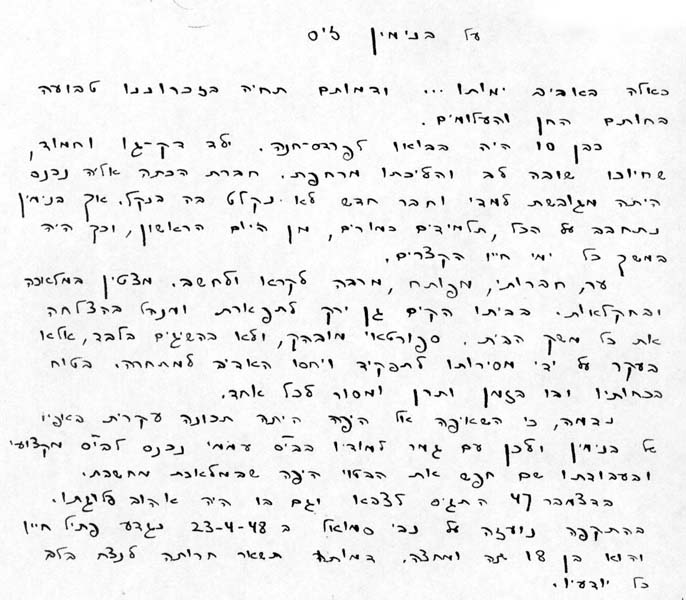 על בנימין זיס
כאלה באביב ימותו... ודמותם תחיה בזכרוננו טבועה
בחותם החן והעלומים.
כבן 10 היה בבואו לפרדס-חנה. ילד דק-גו וחמוד,
שחיוכו שובה לב והליכתו מרחפת. חברת הכתה אליה נכנס
היתה מגובשת למדי וחבר חדש לא נקלט בה בנקל. אך בנימין
נתחבב על הכל, תלמידים כמורים, מן היום הראשון, וכך היה
במשך כל ימי חייו הקצרים.
ער, חברותי, מפותח, מרבה לקרא ולחשב. מצטין במלאכה
ובחקלאות. בביתו הקים גן ירק לתפארת ומנהל בהצלחה
את כל משק הבית. ספורטאי מובהק, ולא בהשגים בלבד, אלא
בעקר על ידי מסירותו לתפקיד ויחסו האדיב למתחרה. בטוח
בכחותיו ובו בזמן ותרן ומסור לכל אחד.
נדמה, כי השאיפה אל היפה היתה תכונה עקרית באפיו
של בנימין ולכן עם גמר למודיו בבי"ס עממי נכנס לבי"ס מקצועי
ובעבודתו שם חפש את הבטוי היפה שבמלאכת מחשבת.
בדצמבר 47 התגיס לצבא וגם בו היה אהוב פלוגתו.
בהתקפה נועזה על נבי סמואל ב 23-4-48 נגדע פתיל חייו
והוא בן 18 שנה ומחצה. דמותו תשאר חרותה לנצח בלב
כל יודעיו.